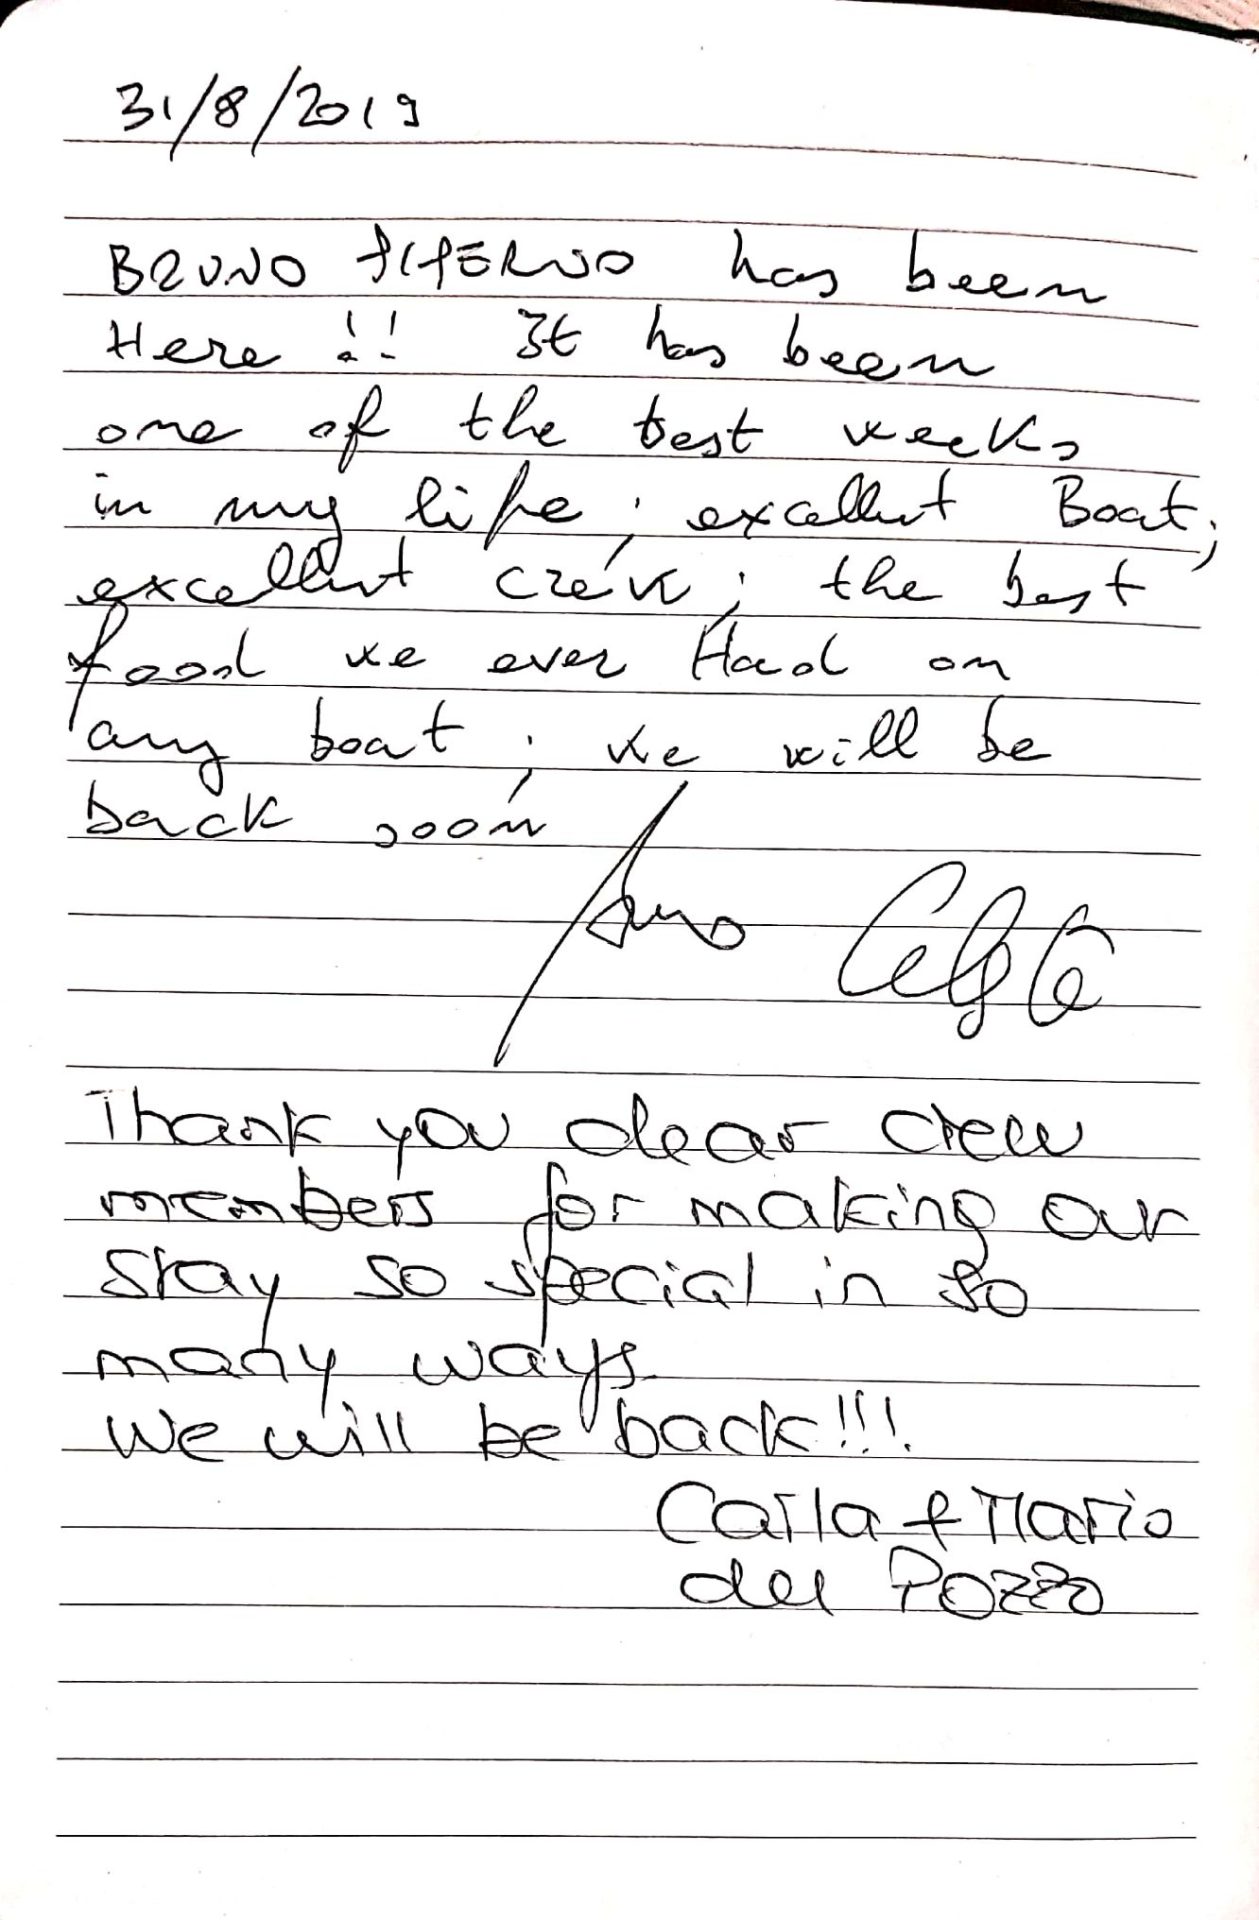 31/8/2019
BRUNO PIPERNO has been
Here !! It has been
one of the best weeks
in my life; excellent Boat;
excellent crew; the best
food we ever Had on
any boat; we will be
back soon
Thank you dear crew
members for making our
stay so special in so
many ways.
We will be back!!!
Carla + Mario
del Pozzo